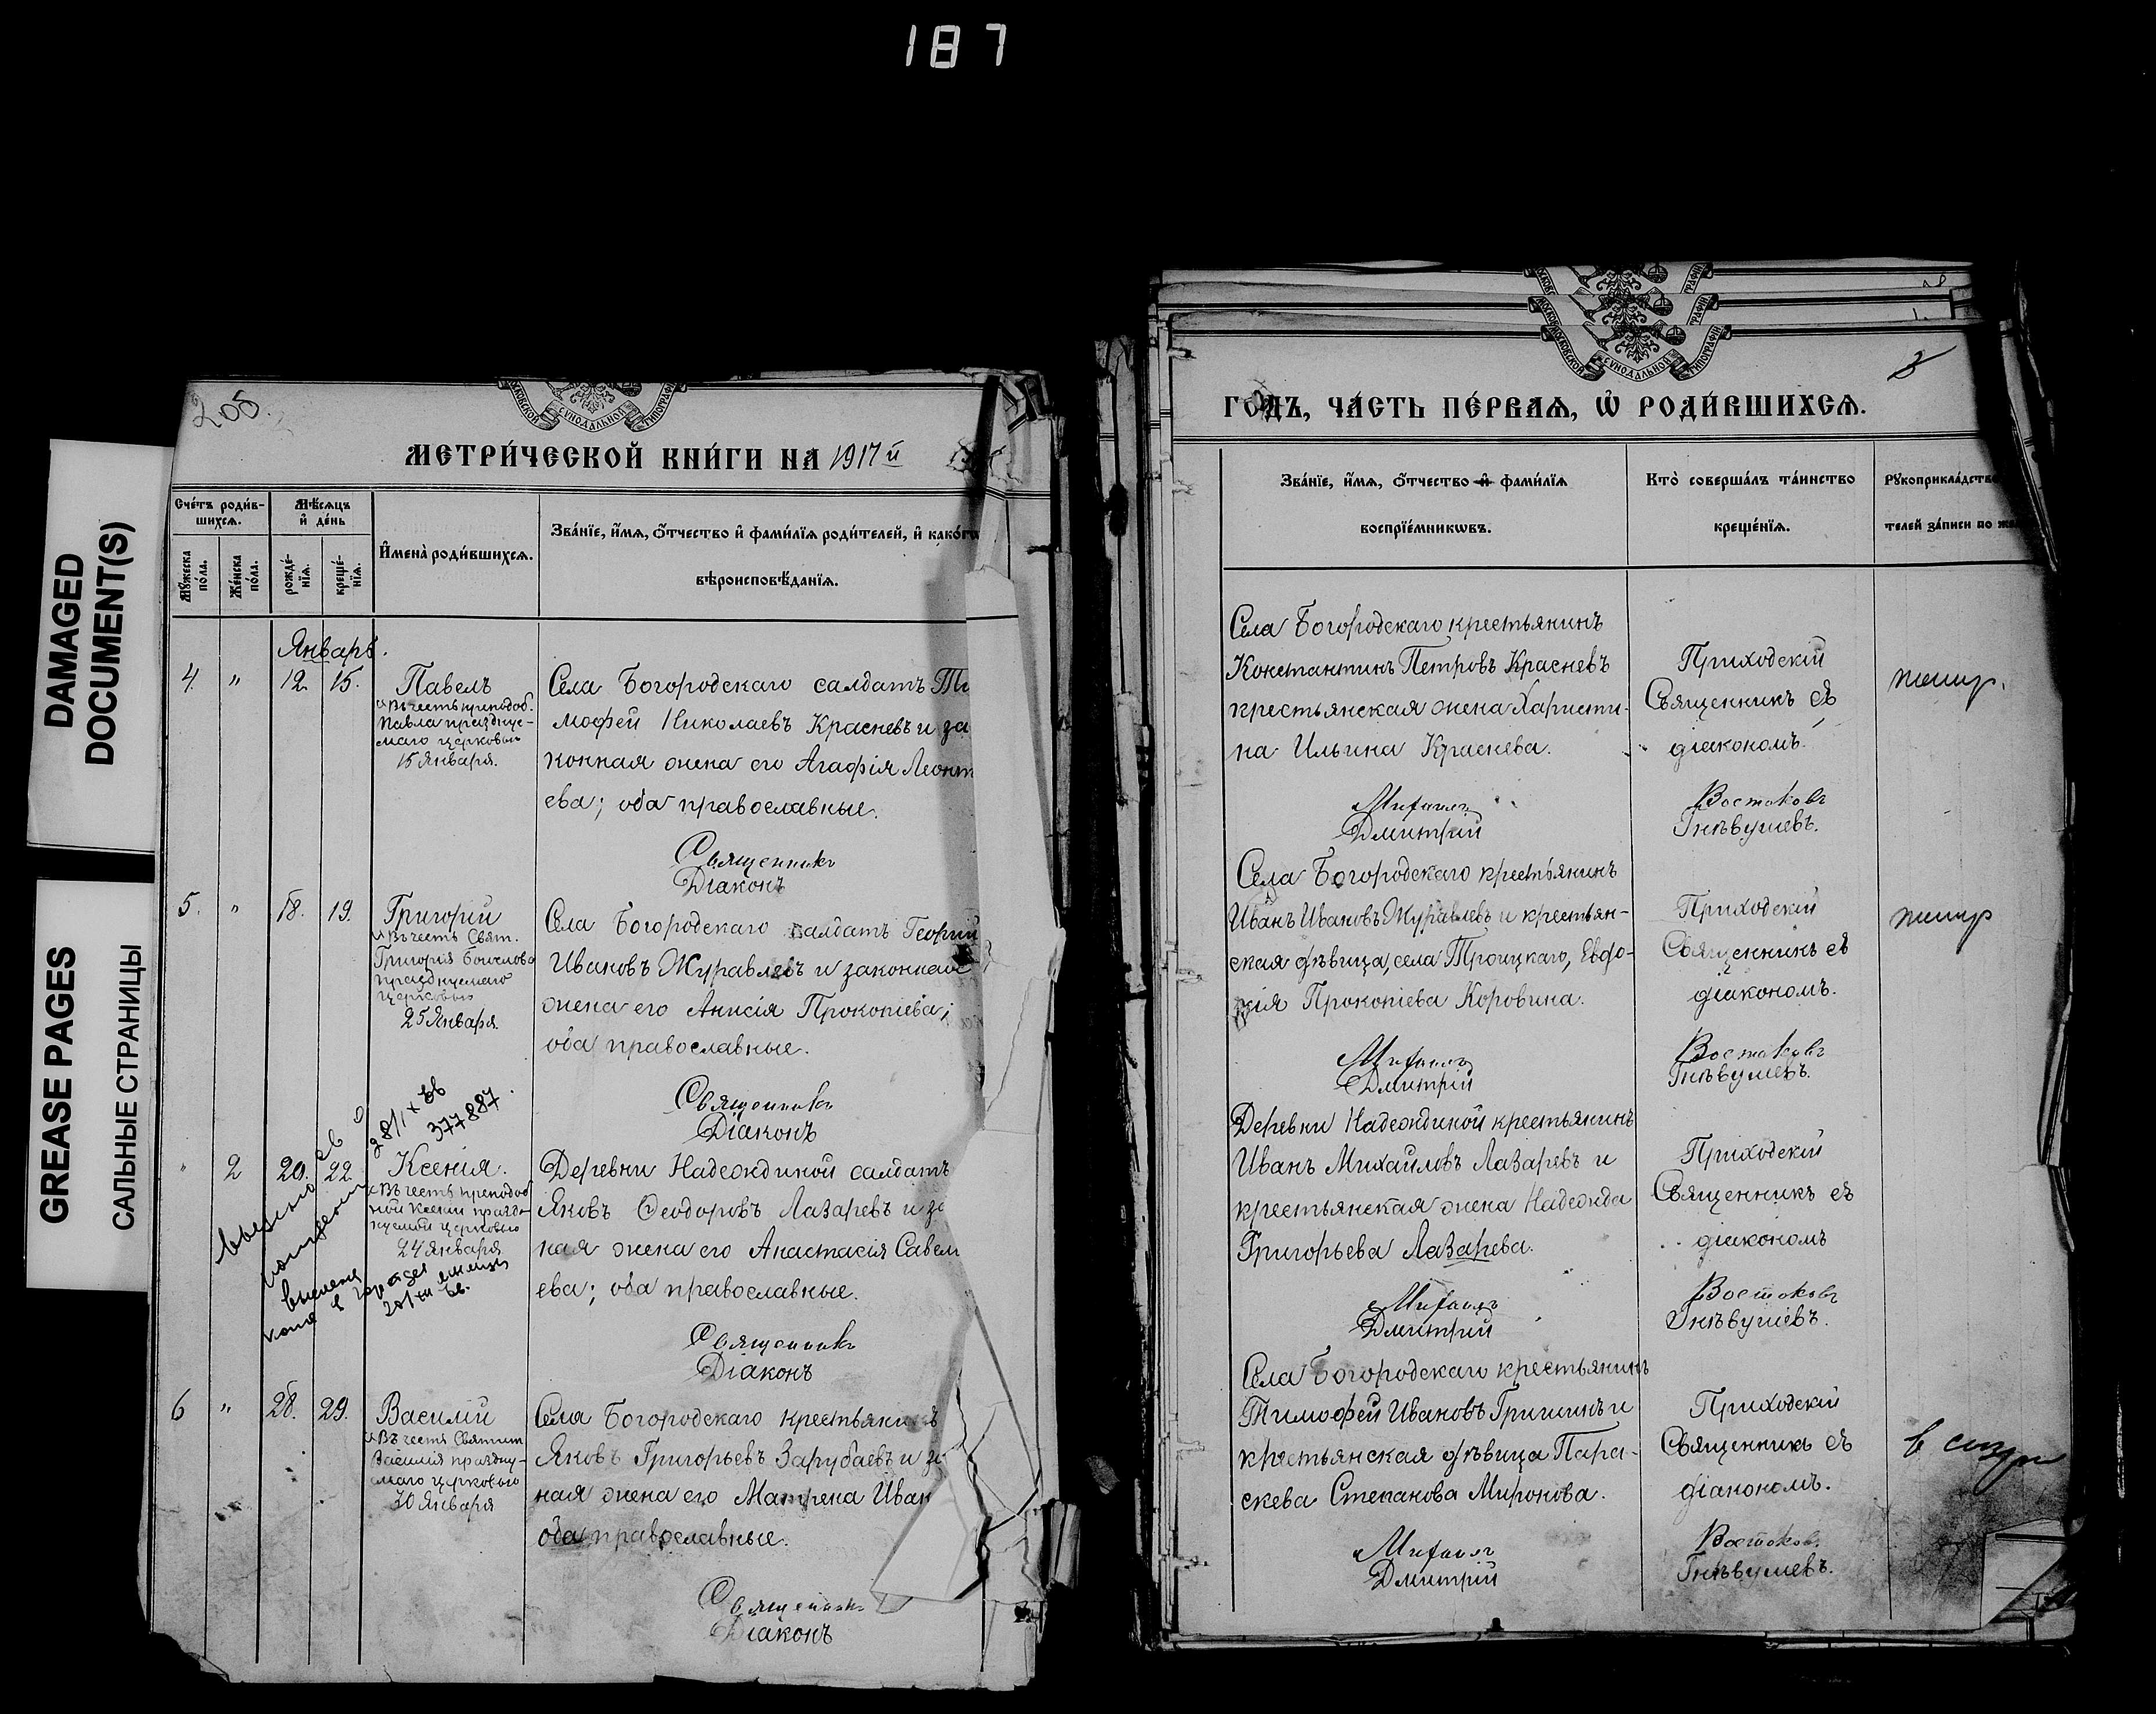 187
DAMAGED
DOCUMENT(S)
GREASE PAGES
САЛЬНЫЕ СТРАНИЦЫ
205.
МОСКОВСКОЙ СУНОДАЛЬНОЙ ТИПОГРАФІИ
МЕТРИ́ЧЕСКОЙ КНИ́ГИ НА 1917й
Сче́тъ роди́в-
шихсѧ.
Мѣ́сѧцъ
и҆ де́нь
Мꙋ́жеска
по́ла.
Же́нска
по́ла.
рожде́-
нїѧ.
креще́-
нїѧ.
И҆мена̀ роди́вшихсѧ.
Зва́нїе, и҆́мѧ, ѻ҆́тчество и҆ фами́лїѧ роди́телей, и҆ како́гѡ
вѣроисповѣ́данїѧ.
Январь.
4. " 12. 15. Павелъ
Въ честь преподоб.
Павла праздну-
емаго церковью
15 Января.
Села Богородскаго салдатъ Ти
мофей Николаевъ Красневъ и за
конная жена его Агафія Леонт
ева; оба православные.
Священникъ
Діаконъ
5. " 18. 19. Григорій
Въ честь Свят.
Григорія Богослова
празднуемаго
церковью
25 Января
Села Богородскаго салдатъ Георгій
Ивановъ Журавлевъ и законная
жена его Анисія Прокопіева;
оба православные.
Священникъ
Діаконъ
28/IX
377887.
" 2 20. 22. Ксенія.
Въ честь преподоб
ной Ксеніи празд-
нуемой церковью
24 января
Деревни Надеждиной салдатъ
Яковъ Ѳеодоровъ Лазаревъ и за
ная жена его Анастасія Савел
ева; оба православные.
Священникъ
Діаконъ
6 " 28. 29. Василій
Въ честь Святит
Василія праздну-
емаго церковью
30 Января
Села Богородскаго крестьянинъ
Яковъ Григорьевъ Зарубаевъ и за
ная жена его Матрена Иван
оба православные.
Священникъ
Діаконъ
МОСКОВСКОЙ СУНОДАЛЬНОЙ ТИПОГРАФІИ
3
ГО́ДЪ, ЧА́СТЬ ПЕ́РВАѦ, Ѡ҆ РОДИ́ВШИХСѦ.
Зва́нїе, и҆́мѧ, ѻ҆́тчество и҆ фами́лїѧ
воспрїе́мникѡвъ.
Кто̀ соверша́лъ та́инство
креще́нїѧ.
Рꙋкоприкла́дство
телей за́писи по же
Села Богородскаго крестьянинъ
Константинъ Петровъ Красневъ
крестьянская жена Харисти-
на Ильина Краснева.
Михаилъ
Дмитрій
Приходскій
Священникъ съ
діакономъ.
Востоковъ
Гнѣвушевъ.
Села Богородскаго крестьянинъ
Иванъ Ивановъ Журавлевъ и крестьян-
ская дѣвица, села Троицкаго, Евдо-
кія Прокопіева Коровина.
Михаилъ
Дмитрій
Приходскій
Священникъ съ
діакономъ.
Востоковъ
Гнѣвушевъ.
Деревни Надеждиной крестьянинъ
Иванъ Михайловъ Лазаревъ и
крестьянская жена Надежда
Григорьева Лазарева.
Михаилъ
Дмитрій
Приходскій
Священникъ съ
діакономъ
Востоковъ
Гнѣвушевъ.
Села Богородскаго крестьянинъ
Тимофей Ивановъ Гришинъ и
крестьянская дѣвица Пара-
скева Степанова Миронова.
Михаилъ
Дмитрій
Приходскій
Священникъ съ
діакономъ.
Востоковъ
Гнѣвушевъ.